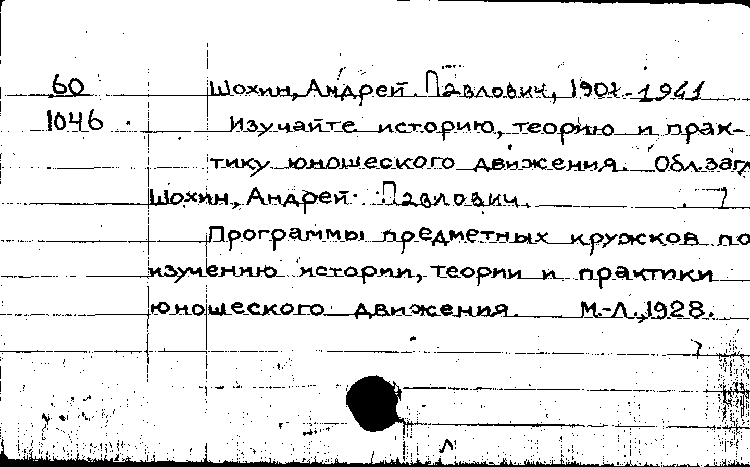 60 Шохин, Андрей Павлович, 1901-1941
1046 Изучайте историю, теорию и прак-
тику юношеского движения. Обл.загл
Шохин, Андрей Павлович.
Программы предметных кружков по
изучению истории, теории и практики
юношеского движения. М.-Л., 1928.